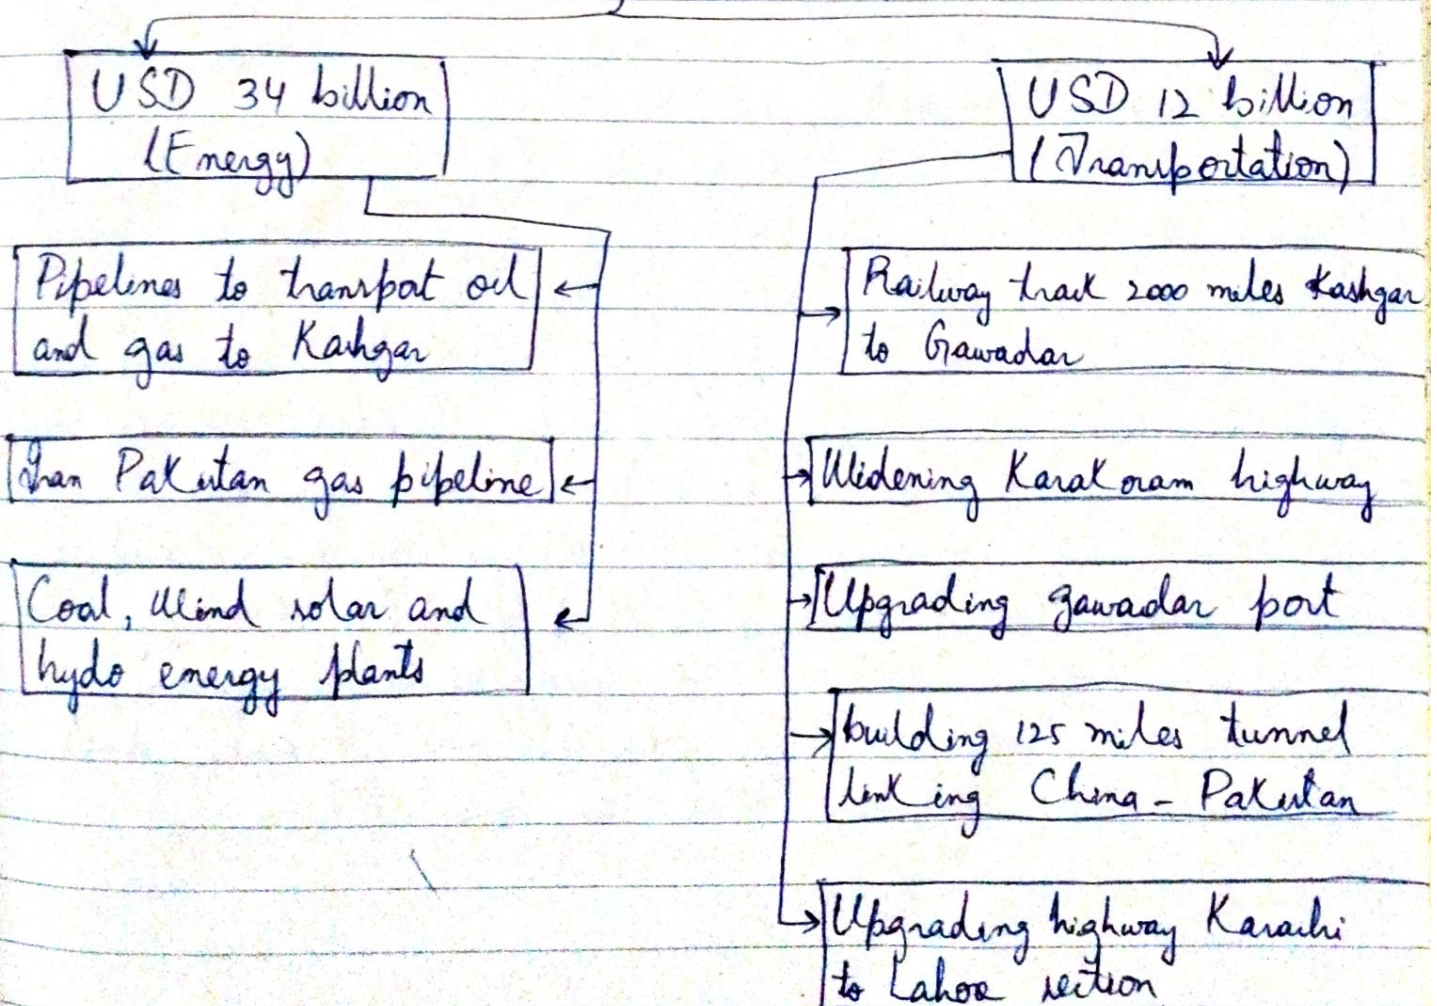 USD 34 billion
(Energy)
Pipelines to transport oil
and gas to Kashgar
Iran Pakistan gas pipeline
Coal, Wind solar and
hydo energy plants
USD 12 billion
(Transportation)
Railway track 2000 miles Kashgar
to Gawadar
Widening Karakoram highway
Upgrading gawadar port
building 125 miles tunnel
linking China - Pakistan
Upgrading highway Karachi
to Lahore section